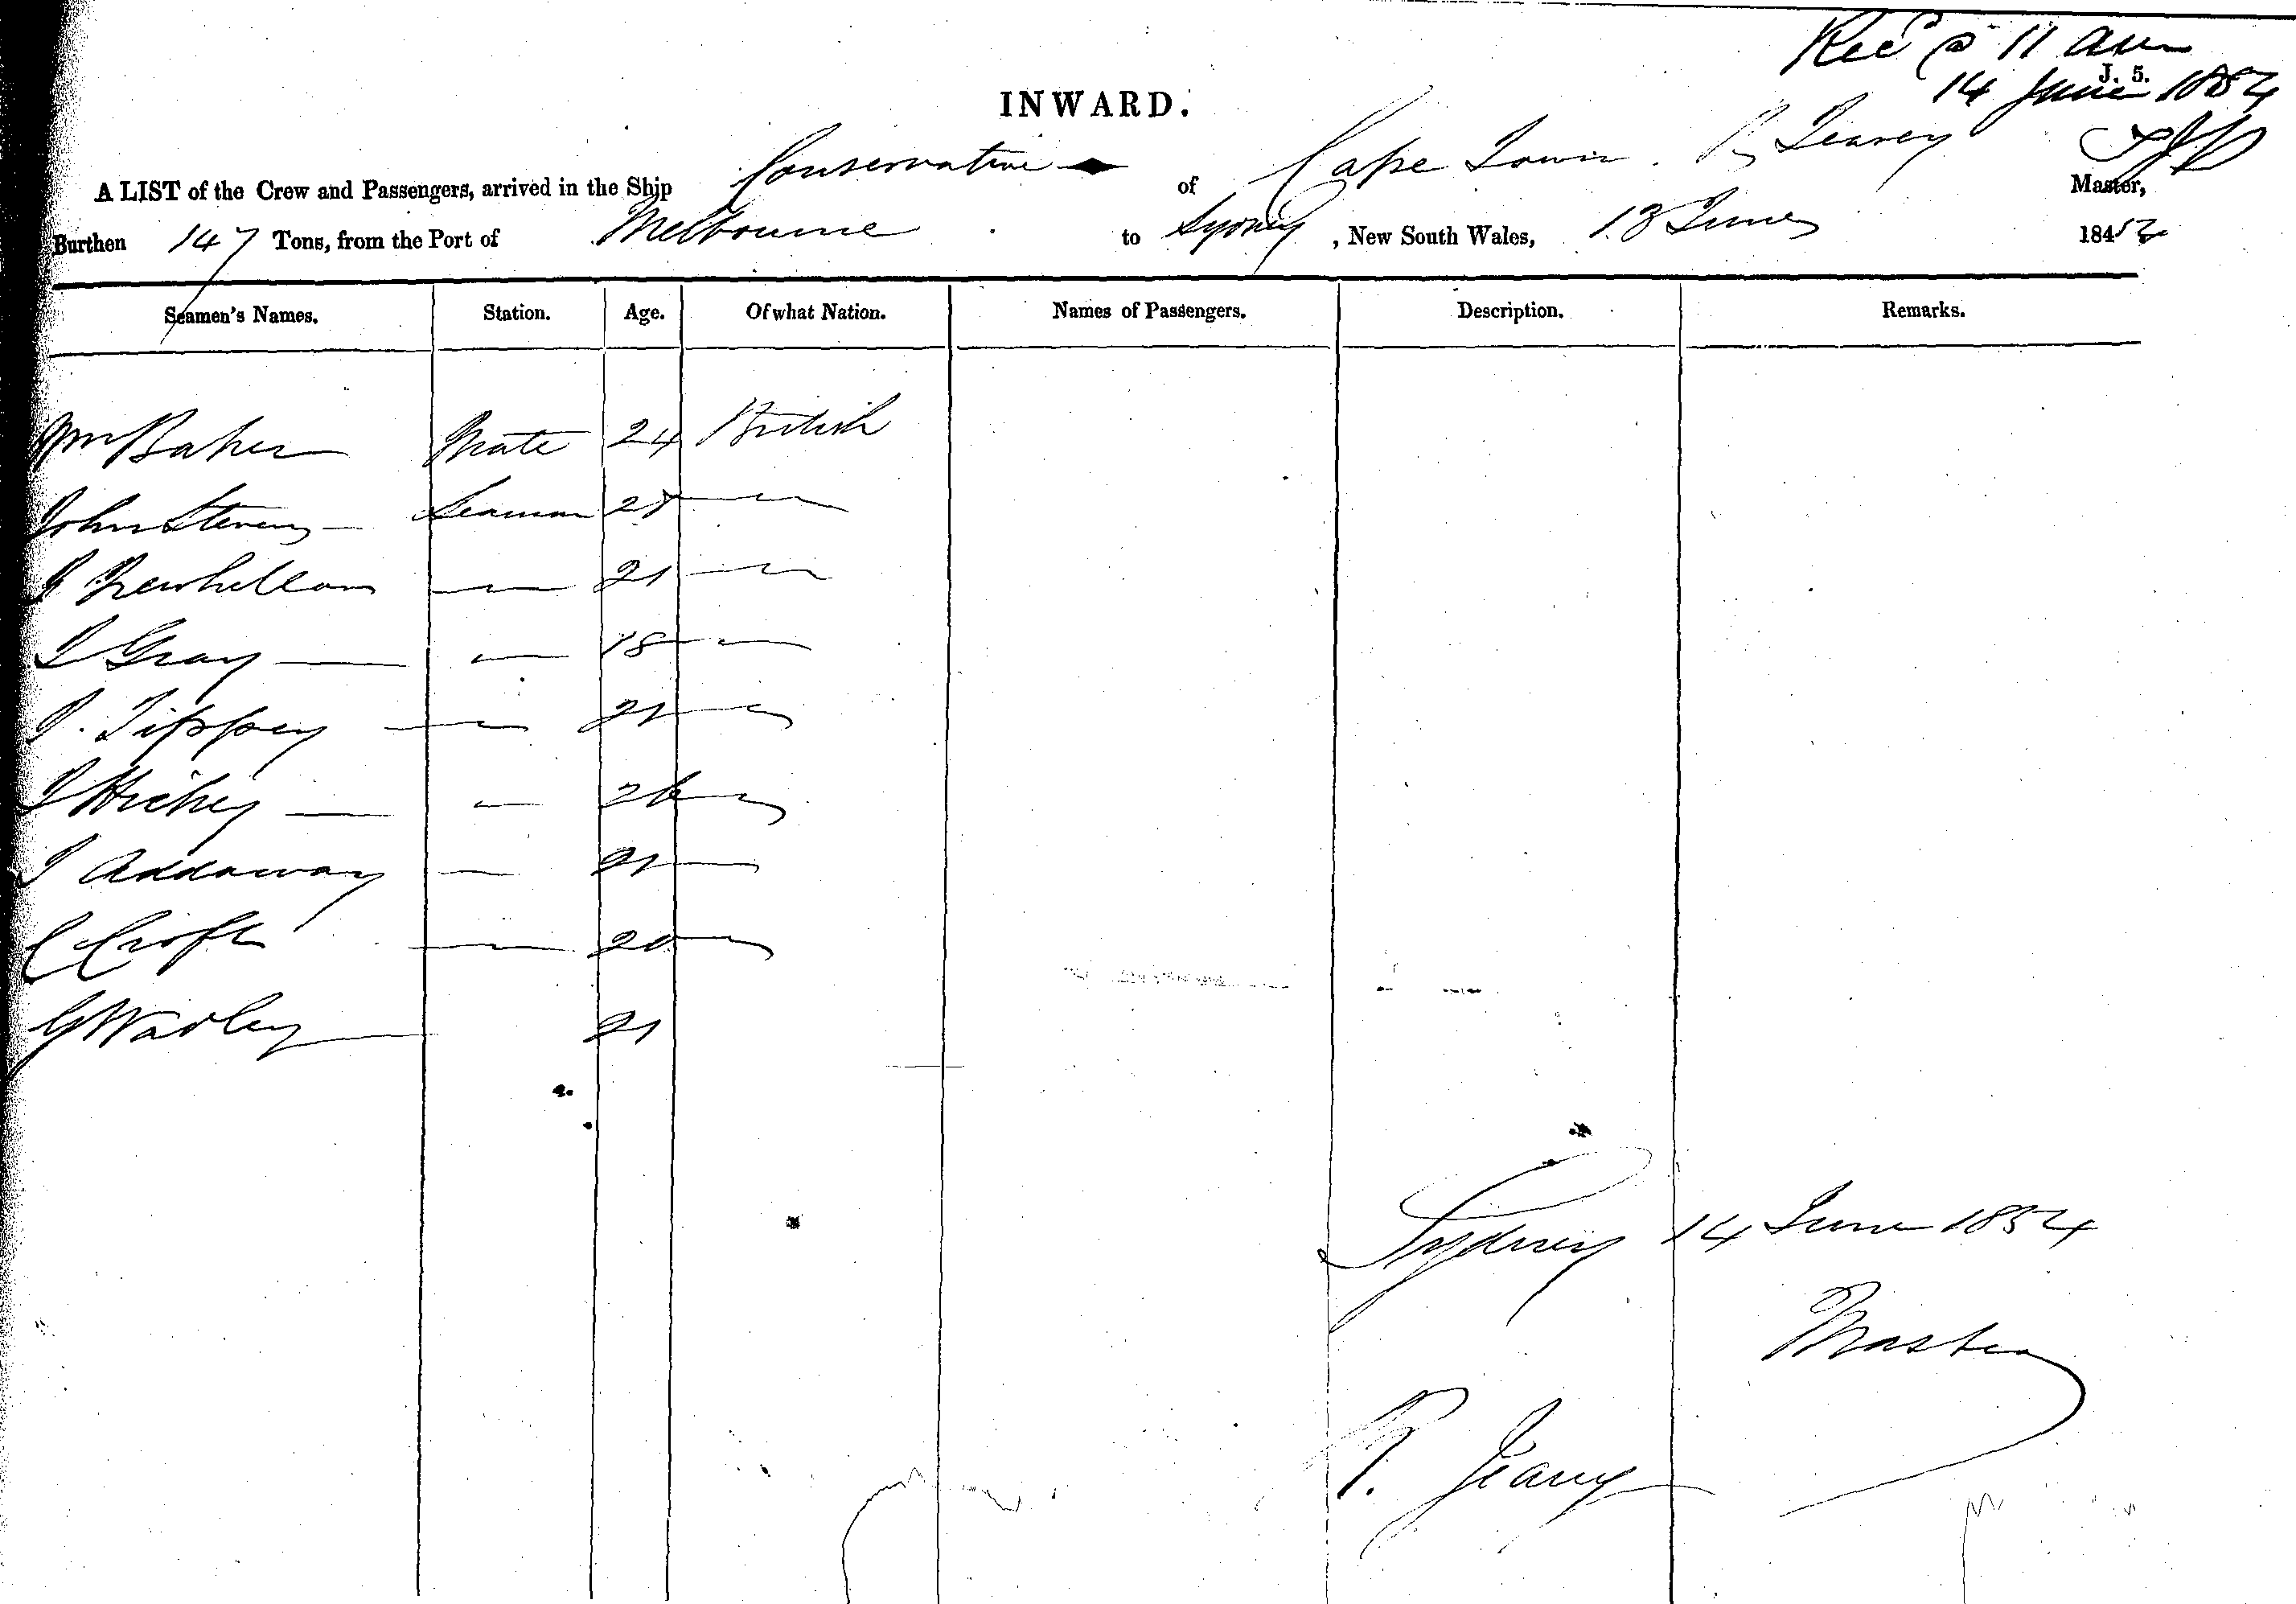 Recd @ 11 am
J. 5.
14 June 1854
INWARD.
A LIST of the Crew and Passengers, arrived in the Ship Conservative of Cape Town. P Jeavey Master,
Burthen 147 Tons, from the Port of Melbourne to Sydney, New South Wales, 13 June 1854
Seamen's Names. Station. Age. Of what Nation. Names of Passengers. Description. Remarks.
Wm Baker Mate 24 British
John Stevens — Seaman 28 —
J Trewhellan — 21 —
J Gray — — 18 —
J. Tippey — 21 —
J Hickey — — 26 —
J Addaway — 21 —
C Croft — 20 —
G Wadley — 21
Sydney 14 June 1854
Master